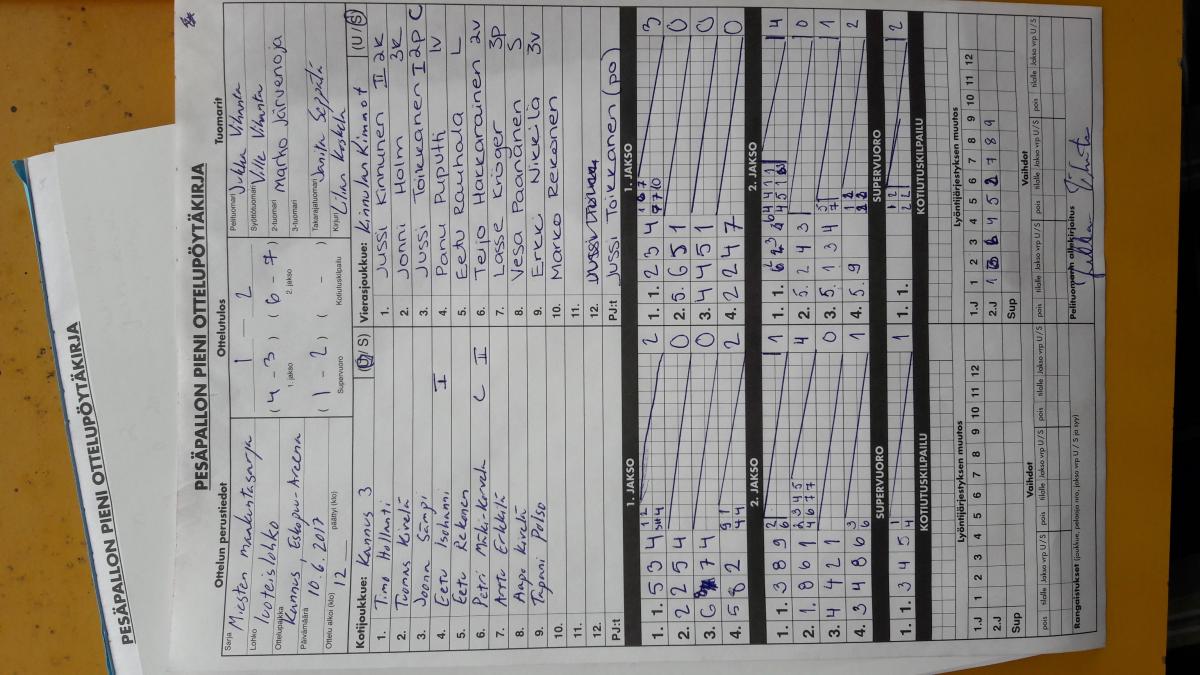 PESÄPALLON PIENI OTTELUPÖYTÄKIRJA
PESÄPALLON PIENI OTTELUPÖYTÄKIRJA
Ottelun perustiedot
Sarja Miesten maakuntasarja
Lohko Luoteislohko
Ottelupaikka Kannus, Eskopuu-Areena
Päivämäärä 10.6.2017
Ottelu alkoi (klo) 12 päättyi (klo)
Ottelutulos
1 - 2
( 4 - 3 ) ( 6 - 7 )
1. jakso 2. jakso
( 1 - 2 ) ( - )
Supervuoro Kotiutuskilpailu
Tuomarit
Pelituomari Jukka Vihanta
Syöttötuomari Ville Vihanta
2-tuomari Marko Järvenoja
3-tuomari
Takarajatuomari Janita Seppälä
Kirjuri
Kotijoukkue: Kannus 3 (U / S)
1. Timo Hollanti
2. Tuomas Kivelä
3. Joona Sämpi
4. Eetu Isohanni I
5. Eetu Rekonen
6. Petri Mäki-Karvela C II
7. Arttu Erkkilä
8. Aapo Kivelä
9. Tapani Polso
10.
11.
12.
PJ:t
Vierasjoukkue: Kinnulan Kinnot (U / S)
1. Jussi Kinnunen II 2K
2. Jonni Holm 3K
3. Jussi Toikkanen I 2p C
4. Panu Puputti 1v
5. Eetu Rauhala L
6. Teijo Hakkarainen 2v
7. Lasse Kröger 3p
8. Vesa Paananen S
9. Erkki Nikkilä 3v
10. Marko Rekonen
11.
12.
PJ:t Jussi Toikkanen (po)
1. JAKSO
1. 1. 5 3 4 2
2. 2 2 5 4 0
3. 6 7 4 0
4. 5 8 2 2
1. JAKSO
1. 1. 2 3 4 3
2. 5. 6 5 1 0
3. 4 4 5 1 0
4. 2 2 4 7 0
2. JAKSO
1. 1. 3 8 9 1
2. 1. 8 6 1 4
3. 4 4 2 1 0
4. 3 4 8 6 1
2. JAKSO
1. 1. 4
2. 5. 2 4 3 0
3. 5. 1 3 4 1
4. 5. 9 2
SUPERVUORO
1. 1. 3 4 5 1
SUPERVUORO
1. 1. 2
KOTIUTUSKILPAILU
KOTIUTUSKILPAILU
Lyöntijärjestyksen muutos
1 2 3 4 5 6 7 8 9 10 11 12
1.J
2.J
Sup
Lyöntijärjestyksen muutos
1 2 3 4 5 6 7 8 9 10 11 12
1.J
2.J
Sup
Vaihdot
pois tilalle Jakso vrp U / S pois tilalle Jakso vrp U / S pois tilalle Jakso vrp U / S
Vaihdot
pois tilalle Jakso vrp U / S pois tilalle Jakso vrp U / S pois tilalle Jakso vrp U / S
Rangaistukset (joukkue, pelaaja nro, jakso vrp U / S ja syy)
Pelituomarin allekirjoitus